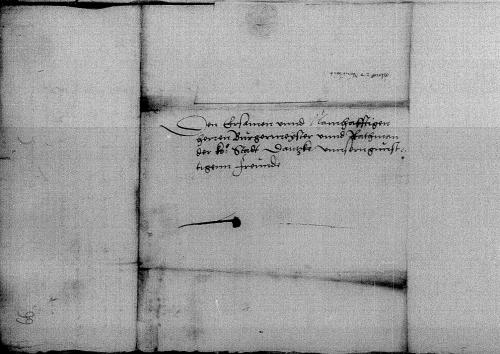 Den Ersamen vnnd Namhafftigen
herren Burgermeyster vnnd Rathman
der ko: Stadt Dantzke vnnsern gunst
tigenn freunde